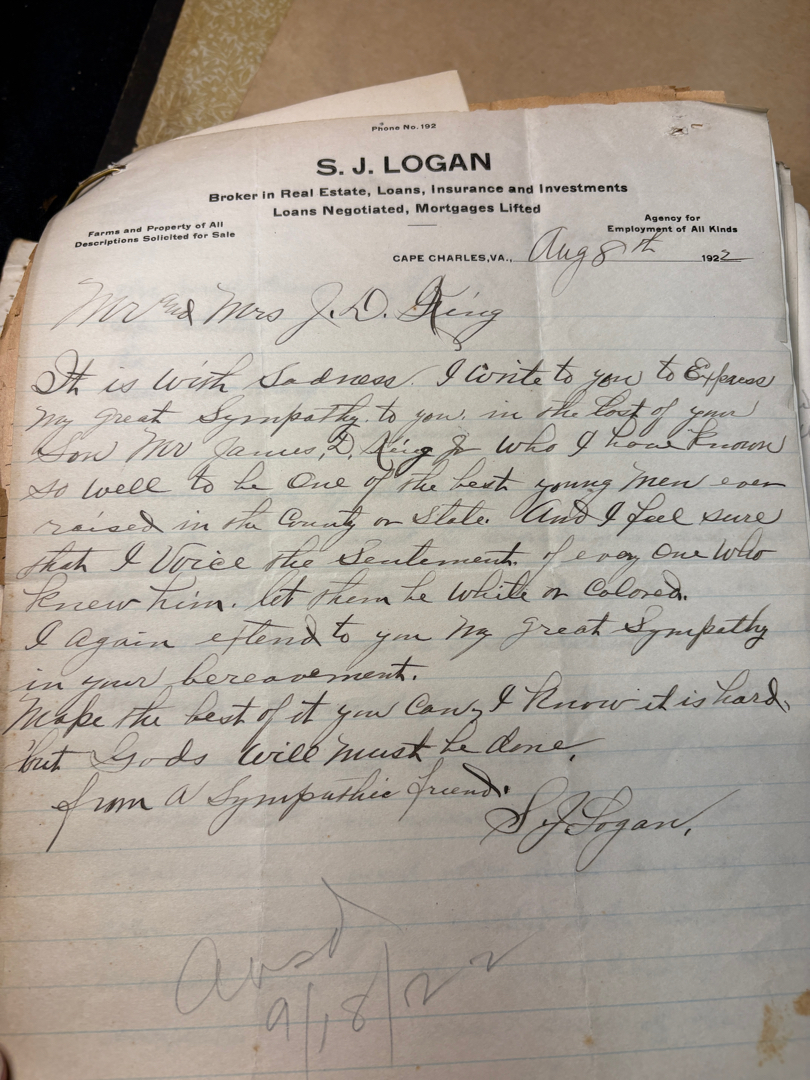 Phone No. 192
S. J. LOGAN
Broker in Real Estate, Loans, Insurance and Investments
Loans Negotiated, Mortgages Lifted
Farms and Property of All
Descriptions Solicited for Sale
Agency for
Employment of All Kinds
CAPE CHARLES, VA., Aug 8th 1922
Mr and Mrs J. D. King
It is with Sadness. I write to you to Express
my great Sympathy. to you. in the lost of your
Son Mr James, D. King Jr who I have known
so well to be One of the best young men ever
raised in the County or State. And I feel sure
that I Voice the Sentement. of every One who
knew him. let them be white or Colored.
I again extend to you my great Sympathy
in your bereavement.
Make the best of it you can, I know it is hard,
but Gods will must be done.
from a Sympathic friend.
S. J. Logan.
Ansd
9/18/22